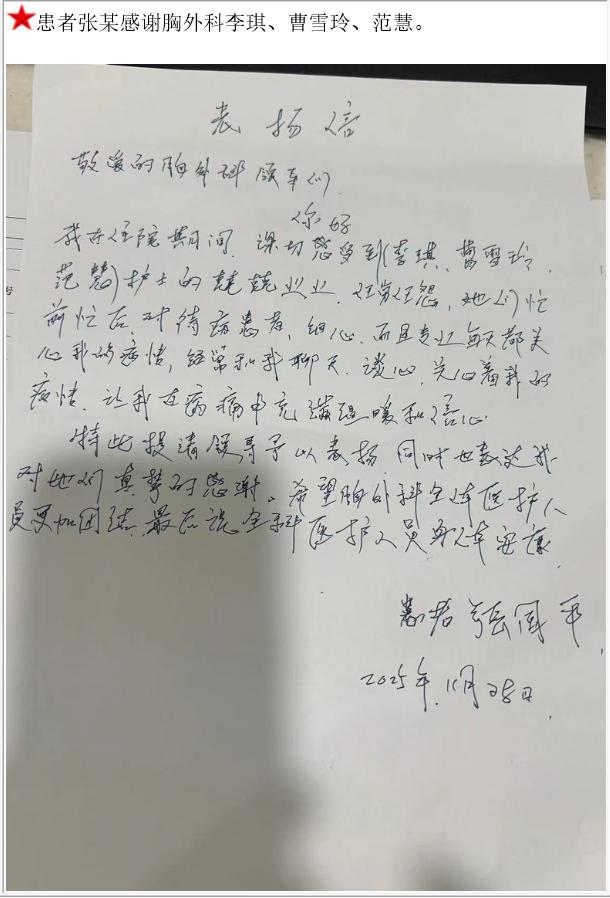 ★患者张某感谢胸外科李琪、曹雪玲、范慧。
表扬信
敬爱的胸外科领导们
你好
我在住院期间，深切感受到(李琪、曹雪玲、
范慧)护士的兢兢业业，任劳任怨，她们忙
前忙后，对待病患者，细心，而且专业每天都关
心我的病情，经常和我聊天，谈心，关心着我的
病情，让我在病痛中充满温暖和信心
特此提请领导予以表扬，同时也表达我
对她们真挚的感谢。希望胸外科全体医护人
员更加团结，最后祝全科医护人员身体安康
患者张国平
2025年11月28日